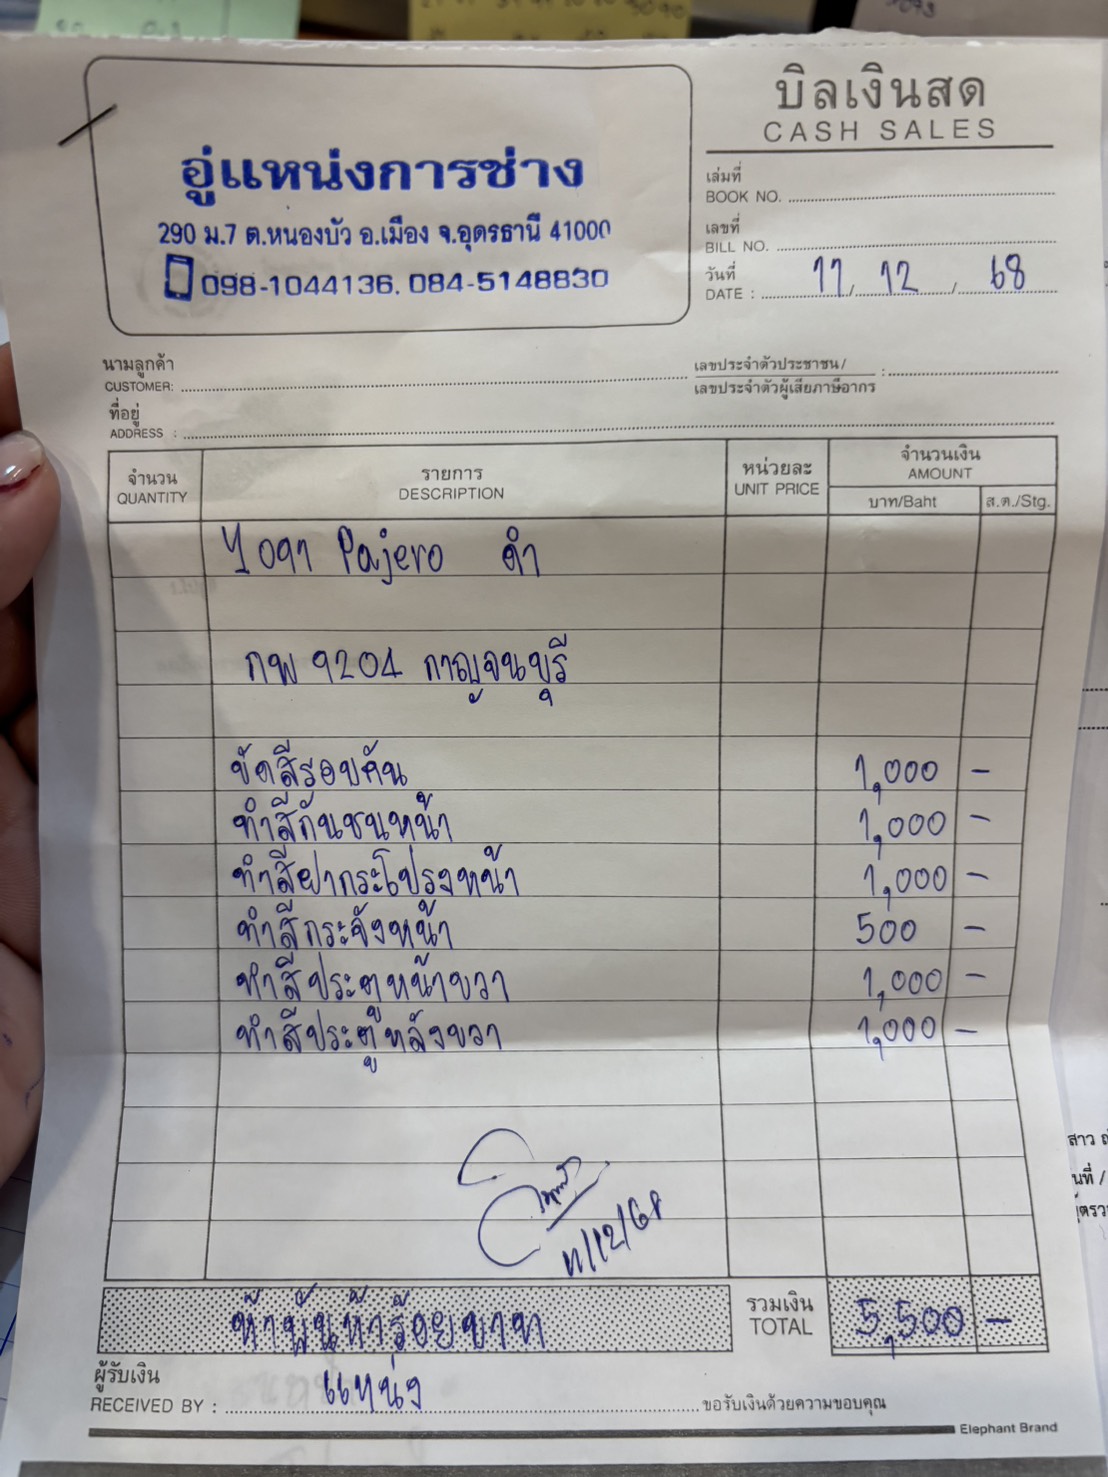 บิลเงินสด
CASH SALES
อู่แหน่งการช่าง
290 ม.7 ต.หนองบัว อ.เมือง จ.อุดรธานี 41000
098-1044136, 084-5148830
เล่มที่
BOOK NO.
เลขที่
BILL NO.
วันที่
DATE : 11, 12, 68
นามลูกค้า
CUSTOMER:
เลขประจำตัวประชาชน/
เลขประจำตัวผู้เสียภาษีอากร :
ที่อยู่
ADDRESS :
จำนวน รายการ หน่วยละ จำนวนเงิน
QUANTITY DESCRIPTION UNIT PRICE AMOUNT
บาท/Baht ส.ต./Stg.
Pajero ดำ
กพ 9204 กาญจนบุรี
ขัดสีรอบคัน 1,000 -
ทำสีกันชนหน้า 1,000 -
ทำสีฝากระโปรงหน้า 1,000 -
ทำสีกระจังหน้า 500 -
ทำสีประตูหน้าขวา 1,000 -
ทำสีประตูหลังขวา 1,000 -
11/12/68
ห้าพันห้าร้อยบาท
รวมเงิน
TOTAL 5,500 -
ผู้รับเงิน
RECEIVED BY : แหน่ง
ขอรับเงินด้วยความขอบคุณ
Elephant Brand